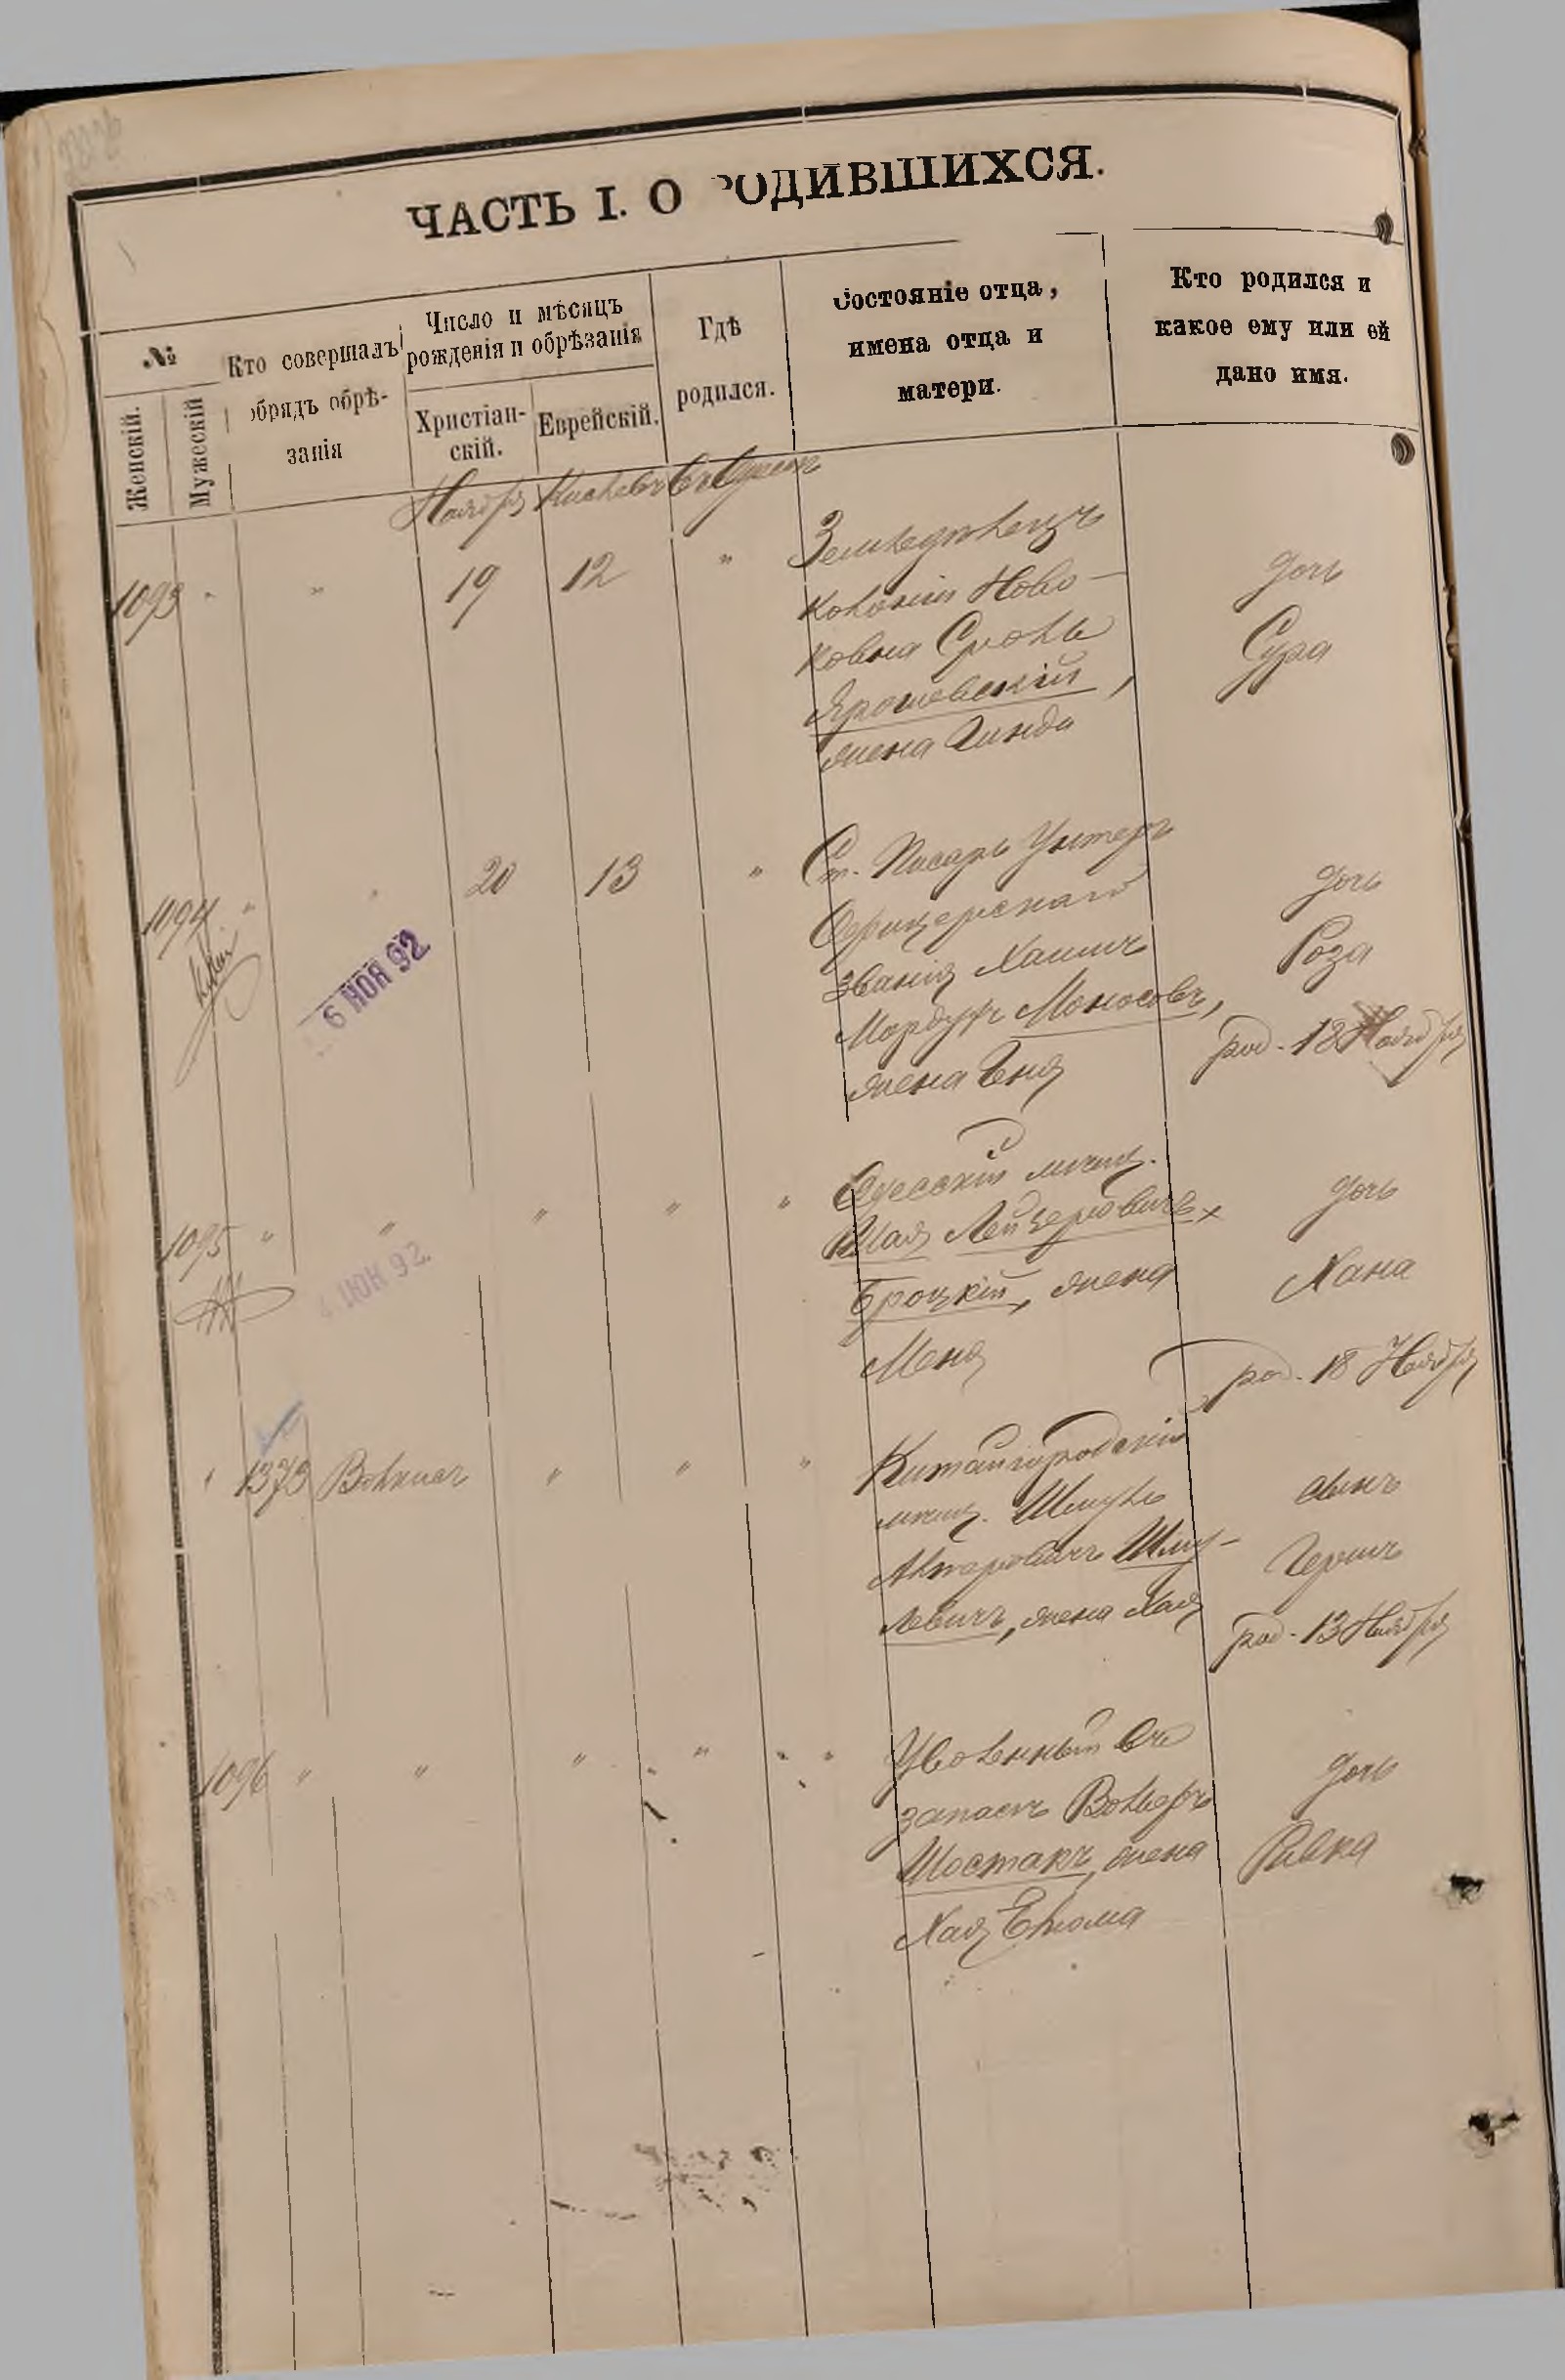 ЧАСТЬ I. О РОДИВШИХСЯ.
№
Женскій.
Мужескій
Кто совершалъ
обрядъ обрѣ-
занія
Число и мѣсяцъ
рожденія и обрѣзанія
Христіан-
скій.
Еврейскій.
Гдѣ
родился.
Состояніе отца,
имена отца и
матери.
Кто родился и
какое ему или ей
дано имя.
Ноября Кислевъ Въ Одессѣ
1093 " " 19 12 "
Земледѣлецъ
колоніи Ново-
ковна Сроль
Ярошевскій,
жена Гинда
дочь
Сура
1094 " " 20 13 "
6 НОЯ 92
Ст. Писарь Унтеръ
Офицерскаго
званія Хаимъ
Мордухъ Моносовъ,
жена Геня
дочь
Роза
род. 18 Ноября
1095 " " " " "
4 ИЮН 92
Одесскій мѣщ.
Шая Лейзеровичъ
Броцкій, жена
Меня
дочь
Хана
род. 18 Ноября
" 1373 Волкисъ " " "
Китайгородскій
мѣщ. Шмуль
Алтеровичъ Шму-
левичъ, жена Хая
сынъ
Гершъ
род. 13 Ноября
1096 " " " " "
Уволенный въ
запасъ Вольфъ
Шостакъ, жена
Хая Ельома
дочь
Ривка